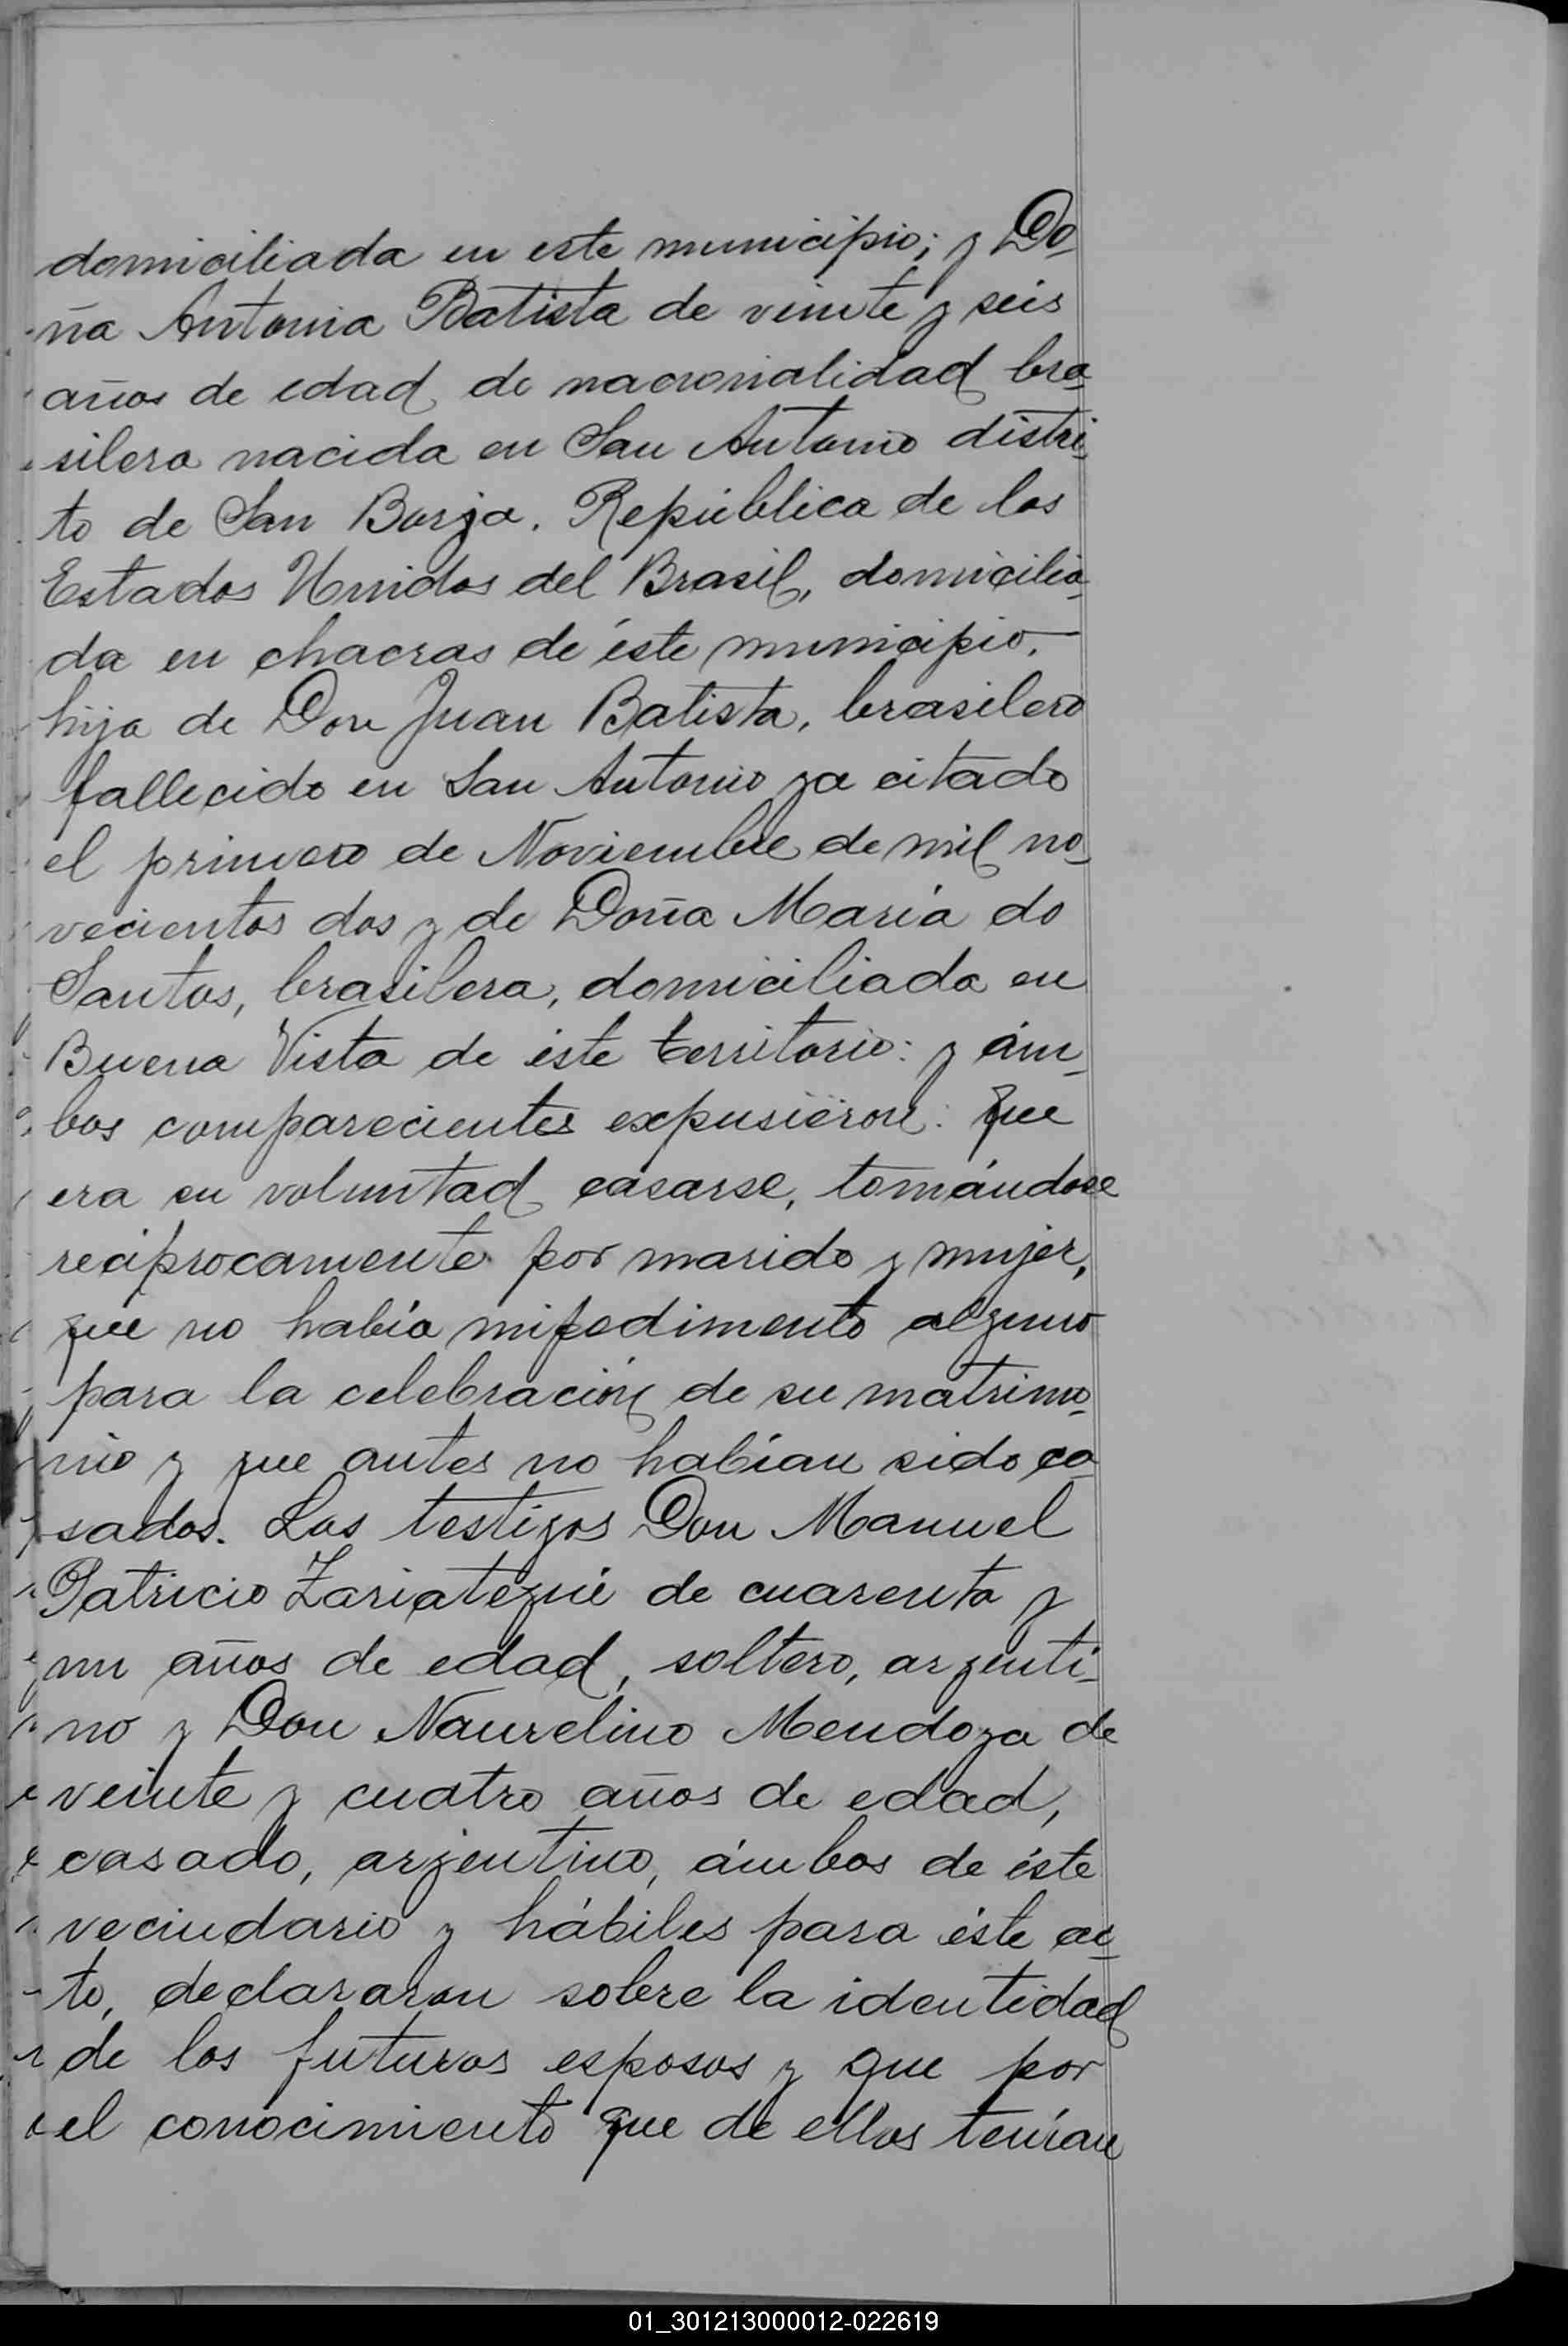 domiciliada en este municipio; y Do-
ña Antonia Batista de veinte y seis
años de edad de nacionalidad bra-
silera nacida en San Antonio distri-
to de San Borja. República de los
Estados Unidos del Brasil, domicilia-
da en chacras de éste municipio,
hija de Don Juan Batista, brasilero
fallecido en San Antonio ya citado
el primero de Noviembre de mil no-
vecientos dos y de Doña María do
Santos, brasilera, domiciliada en
Buena Vista de éste territorio: y ám-
bos comparecientes expusieron: que
era su voluntad casarse, tomándose
reciprocamente por marido y mujer,
que no había impedimento alguno
para la celebración de su matrimo-
nio y que antes no habían sido ca-
sados. Los testigos Don Manuel
Patricio Zariategui de cuarenta y
un años de edad, soltero, argenti-
no y Don Naurelino Mendoza de
veinte y cuatro años de edad,
casado, argentino, ámbos de éste
vecindario y hábiles para éste ac-
to, declararon sobre la identidad
de los futuros esposos y que por
el conocimiento que de ellos tenían
01_301213000012-022619